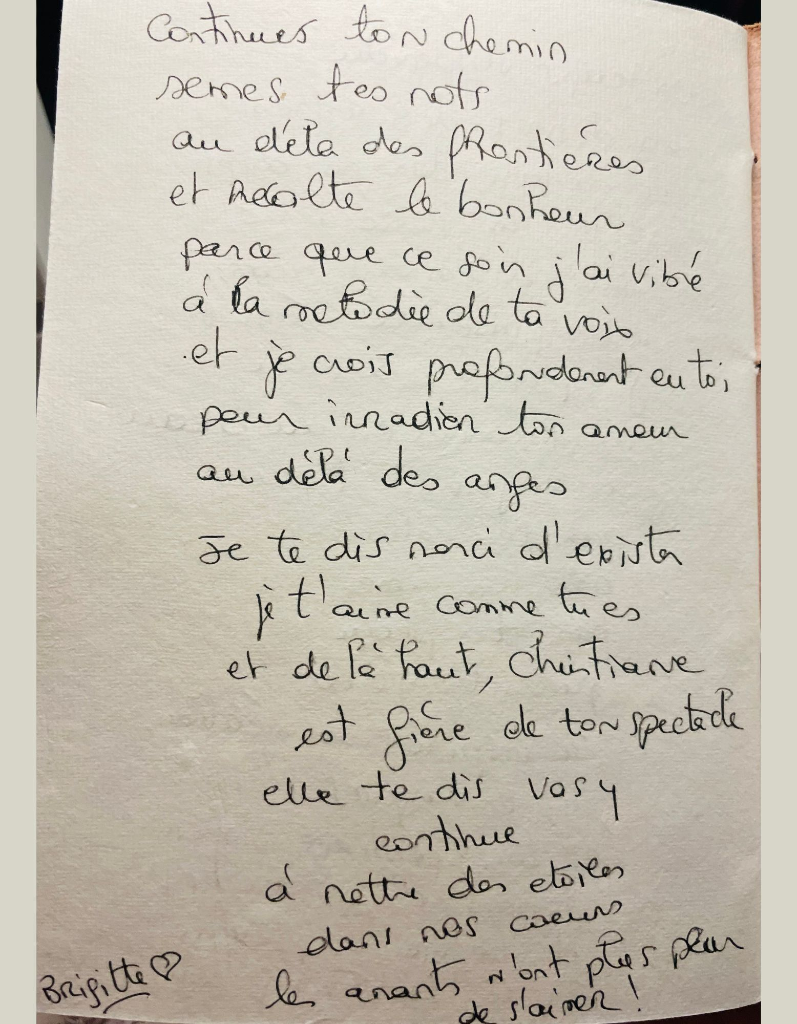 Continues ton chemin
semes tes mots
au déla des frontières
et récolte le bonheur
parce que ce soir j'ai vibré
á la melodie de ta voix
et je crois profondement en toi
pour irradier ton amour
au délá des anges
Je te dis merci d'exister
je t'aime comme tu es
et de là haut, Christiane
est fière de ton spectacle
elle te dis vas y
continue
á mettre des etoiles
dans nos coeurs
les amants n'ont plus peur
de s'aimer !
Brigitte ♡